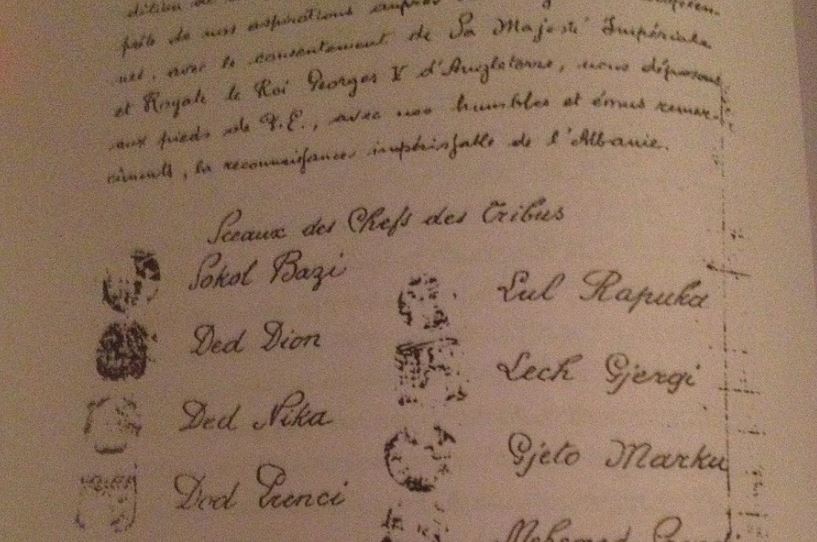 prète de nos aspirations auprès
nes, avec le consentement de Sa Majesté Impériale
et Royale le Roi Georges V d'Angleterre, nous déposons
aux pieds de V.E., avec nos humbles et émus remer-
cîments, la reconnaissance impérissable de l'Albanie.
Sceaux des Chefs des Tribus
Sokol Bazi
Ded Dion
Ded Nika
Dod Prenci
Lul Rapuka
Lech Gjergi
Gjeto Marku
Mehemed